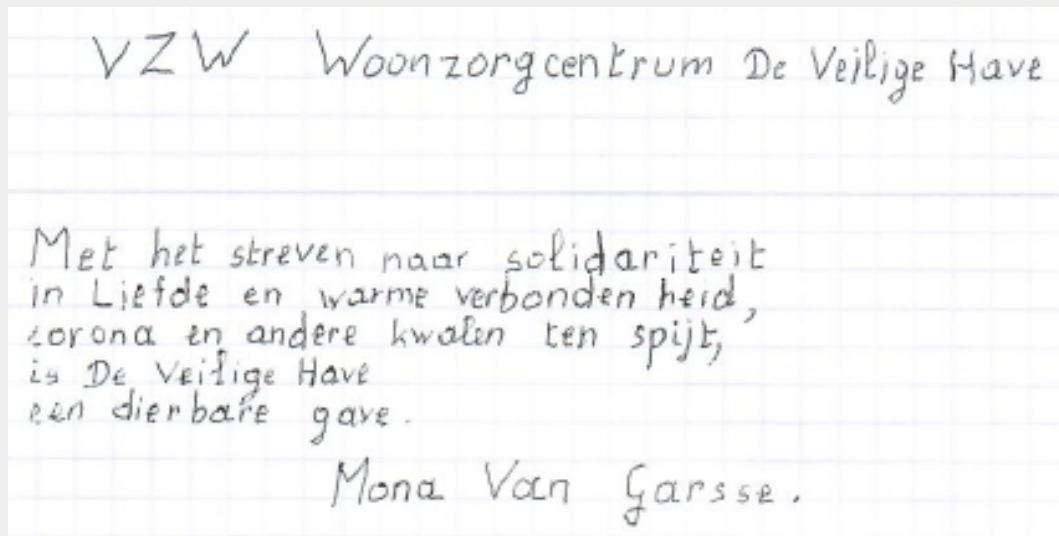 VZW Woonzorgcentrum De Veilige Have
Met het streven naar solidariteit
in Liefde en warme verbondenheid,
corona en andere kwalen ten spijt,
is De Veilige Have
een dierbare gave.
Mona Van Garsse.